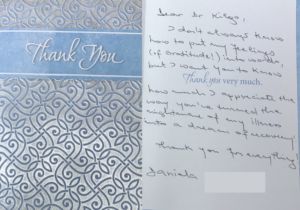 Thank You
Dear Dr Kilgo,
I don't always know
how to put my feelings
(of gratitude!) into words,
but I want you to know
Thank you very much.
how much I appreciate the
way you've turned the
nightmare of my illness
into a dream of recovery.
Thank you for everything
Daniela